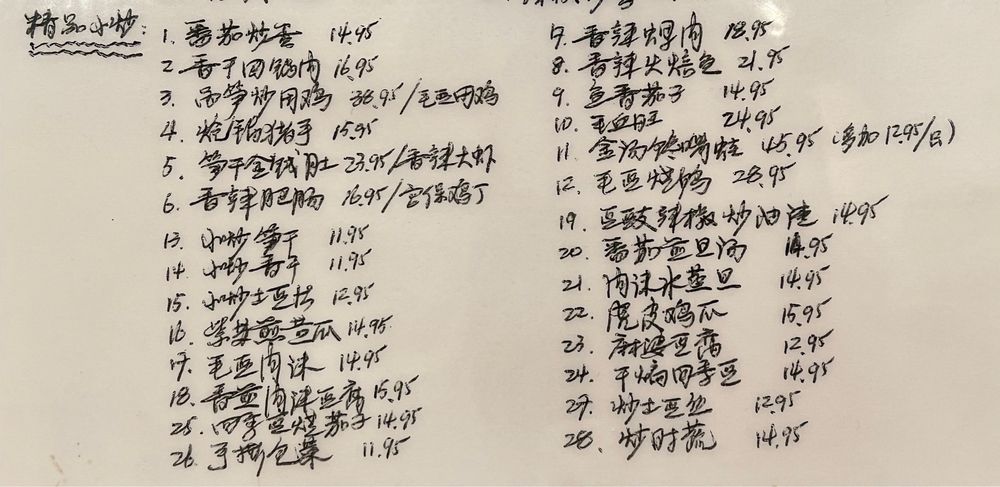 精品小炒:
1. 番茄炒蛋 14.95
2 香干回锅肉 16.95
3. 炒田鸡 38.95/毛豆田鸡
4. 猪手 15.95
5. 笋干金钱肚 23.95/香辣大虾
6. 香辣肥肠 16.95/宫保鸡丁
13. 小炒笋干 11.95
14. 小炒香干 11.95
15. 小炒土豆片 12.95
16. 紫苏煎黄瓜 14.95
17. 毛豆肉沫 14.95
18. 香煎肉沫豆腐 15.95
25. 四季豆烧茄子 14.95
26. 手撕包菜 11.95
7. 香辣焊肉 18.95
8. 香辣火焙鱼 21.95
9. 鱼香茄子 14.95
10. 毛血旺 24.95
11. 金汤馋嘴蛙 45.95 (多加 12.95/只)
12. 毛豆烧鸭 28.95
19. 豆豉辣椒炒油渣 14.95
20. 番茄煎旦汤 14.95
21. 肉沫水蒸旦 14.95
22. 虎皮鸡爪 15.95
23. 麻婆豆腐 12.95
24. 干煸四季豆 14.95
27. 炒土豆丝 12.95
28. 炒时蔬 14.95